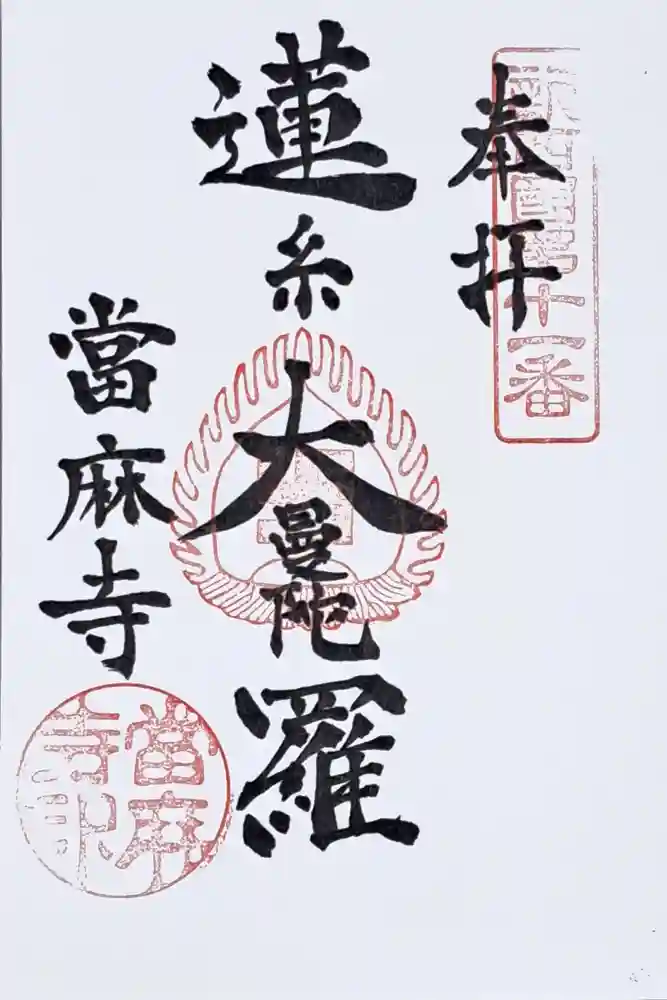 奉拝
十一番
蓮糸大曼陀羅
當麻寺
當麻寺印